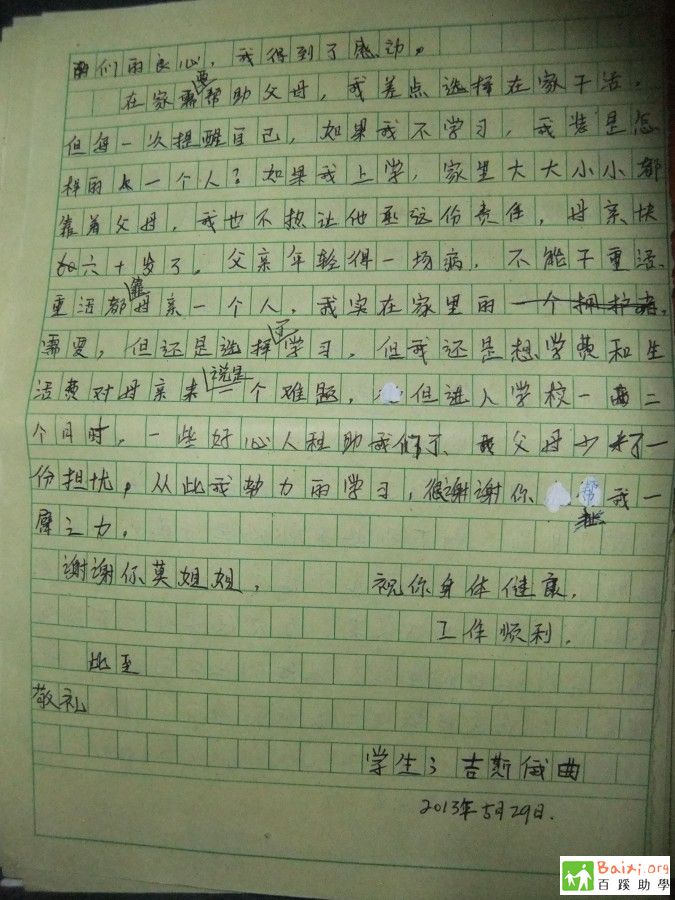 们的良心，我得到了感动。
在家需要帮助父母，我差点选择在家干活，
但每一次提醒自己，如果我不学习，我装是怎
样的一个人？如果我上学，家里大大小小都
靠着父母，我也不热让他承这份责任，母亲快
六十岁了。父亲年轻得一场病，不能干重活、
重活都靠母亲一个人，我实在家里的一个拥护者。
需要，但还是选择了学习，但我还是想学费和生
活费对母亲来说是一个难题，但进入学校一两二
个月时，一些好心人租助我们了、我父母少了一
份担忧，从此我勃力的学习，很谢谢你帮我一
摩之力。
谢谢你莫姐姐， 祝你身体健康，
工作顺利，
此至
敬礼
学生：吉斯俄曲
2013年5月29日.
Baixi.org
百蹊助學